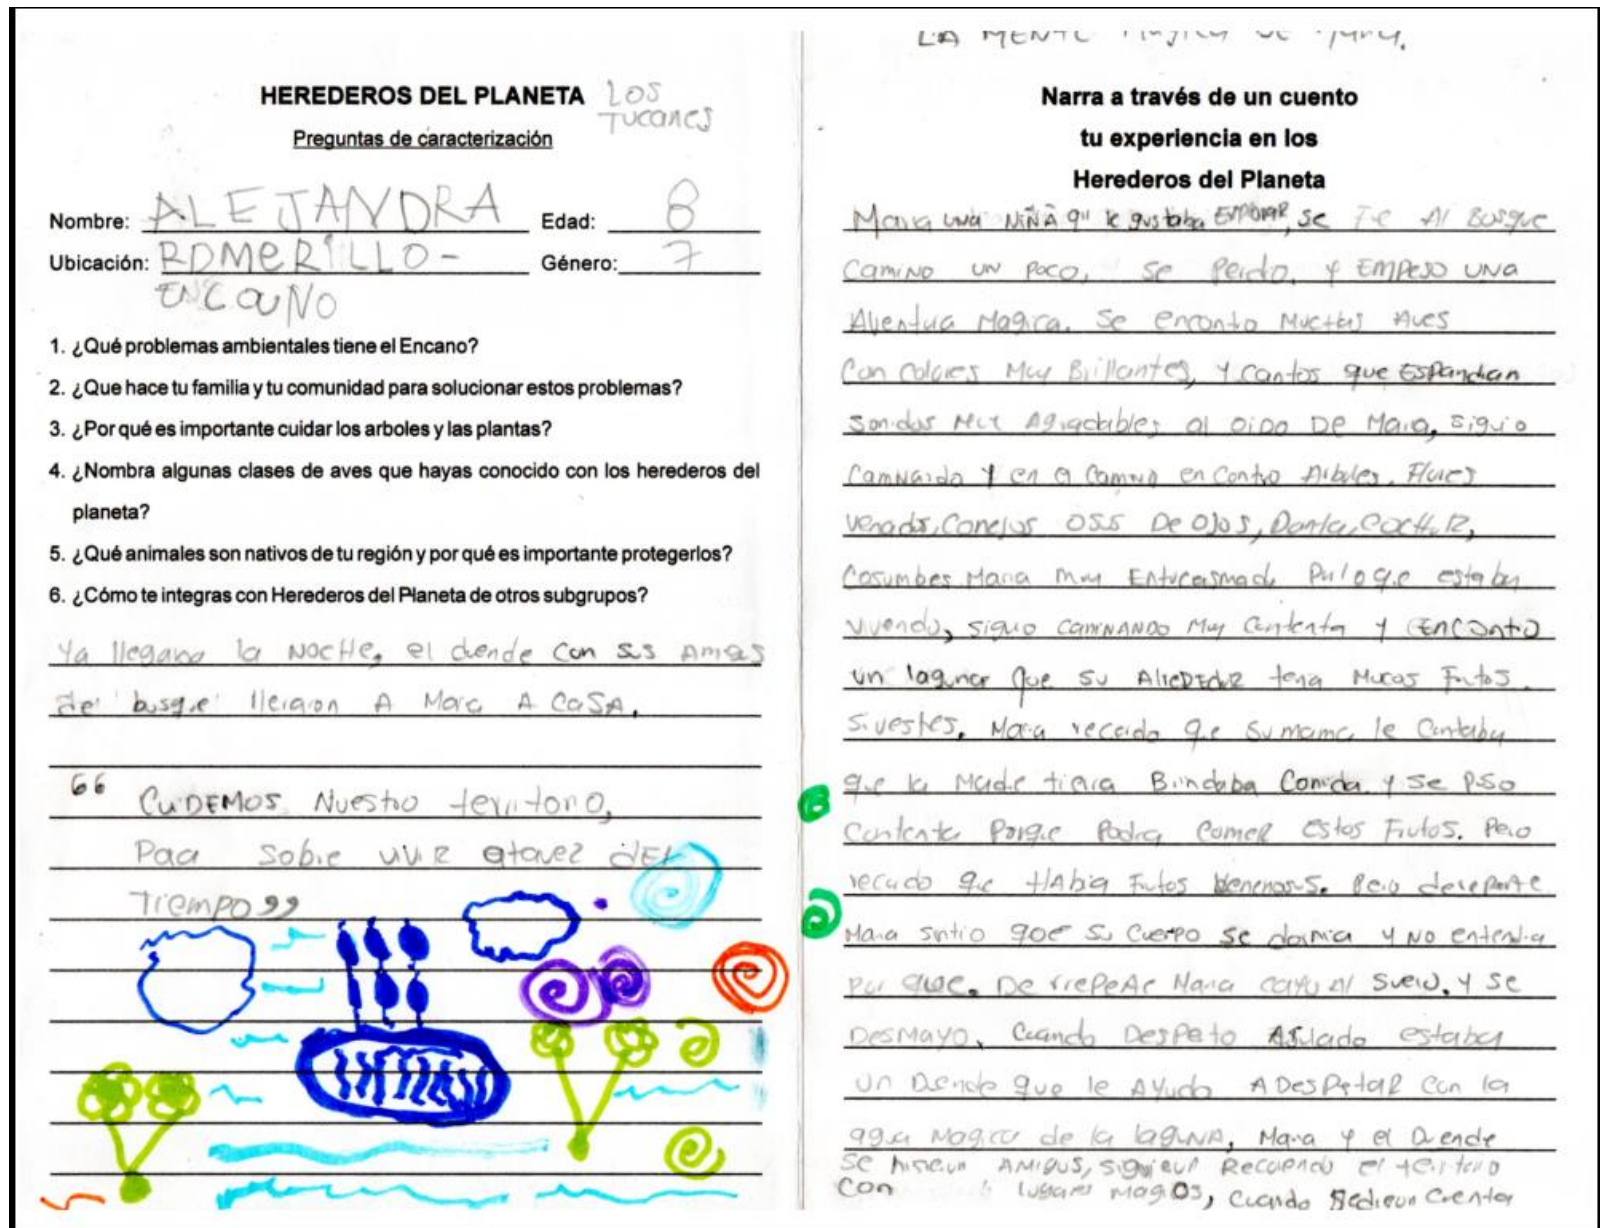 HEREDEROS DEL PLANETA LOS
TUCANES
Preguntas de caracterización
Nombre: ALEJANDRA Edad: 8
Ubicación: ROMERILLO- Género: 7
ENCANO
1. ¿Qué problemas ambientales tiene el Encano?
2. ¿Que hace tu familia y tu comunidad para solucionar estos problemas?
3. ¿Por qué es importante cuidar los arboles y las plantas?
4. ¿Nombra algunas clases de aves que hayas conocido con los herederos del
planeta?
5. ¿Qué animales son nativos de tu región y por qué es importante protegerlos?
6. ¿Cómo te integras con Herederos del Planeta de otros subgrupos?
Ya llegana la NOCHE, el duende con sus AMigs
del bosque lleraron A Mara A CASA.
"CUIDEMOS Nuestro territorio,
Paa sobre uiviR atavez dEl
Tiempo"
LA MENTE Magica de Mara.
Narra a través de un cuento
tu experiencia en los
Herederos del Planeta
Maria una NIÑA qu le gustaba se Fe Al Bosque
camino un poco, se Perdo, y EMPESO UNA
Aventua Magica. Se enconto Muchas Aves
Con colores Muy Brillantes, y cantos que Espandian
sonidos Muy Agradables al oiDO DE Maia, siguio
camNando y en el camino en Contro Arboles, Flores
venados, Conejos OSS De OJOS, Danta,
Maria muy Entucasmada Pulo que estaba
vivendo, siguio CAMINANDO Muy Contenta y ENCONtO
un laguna que su AlreDEduR tena Mucas Frutos
Sivestes. Maria recordo que su mama le Contaba
que la Made tierra Brindaba Comida y se PSO
Contenta Porque Podria ComeR Estos Frutos. Pero
recudo que HAbia Frutos benenosos. Pero derepente
Maria sintio que su Cuerpo se dormia y NO entendia
Por que. De rrepente Maria cayo Al Suelo. y Se
DesMayo. Cuando DesPeto ASulado estaba
un Duende que le AYudo A DesPetaR con la
agua Magica de la laguNA, Maria y el Duende
Se hiseron AMigos, siguieron Recoriendo el teritorio
Con lugares magicos, cuando Sedieron Cuenta